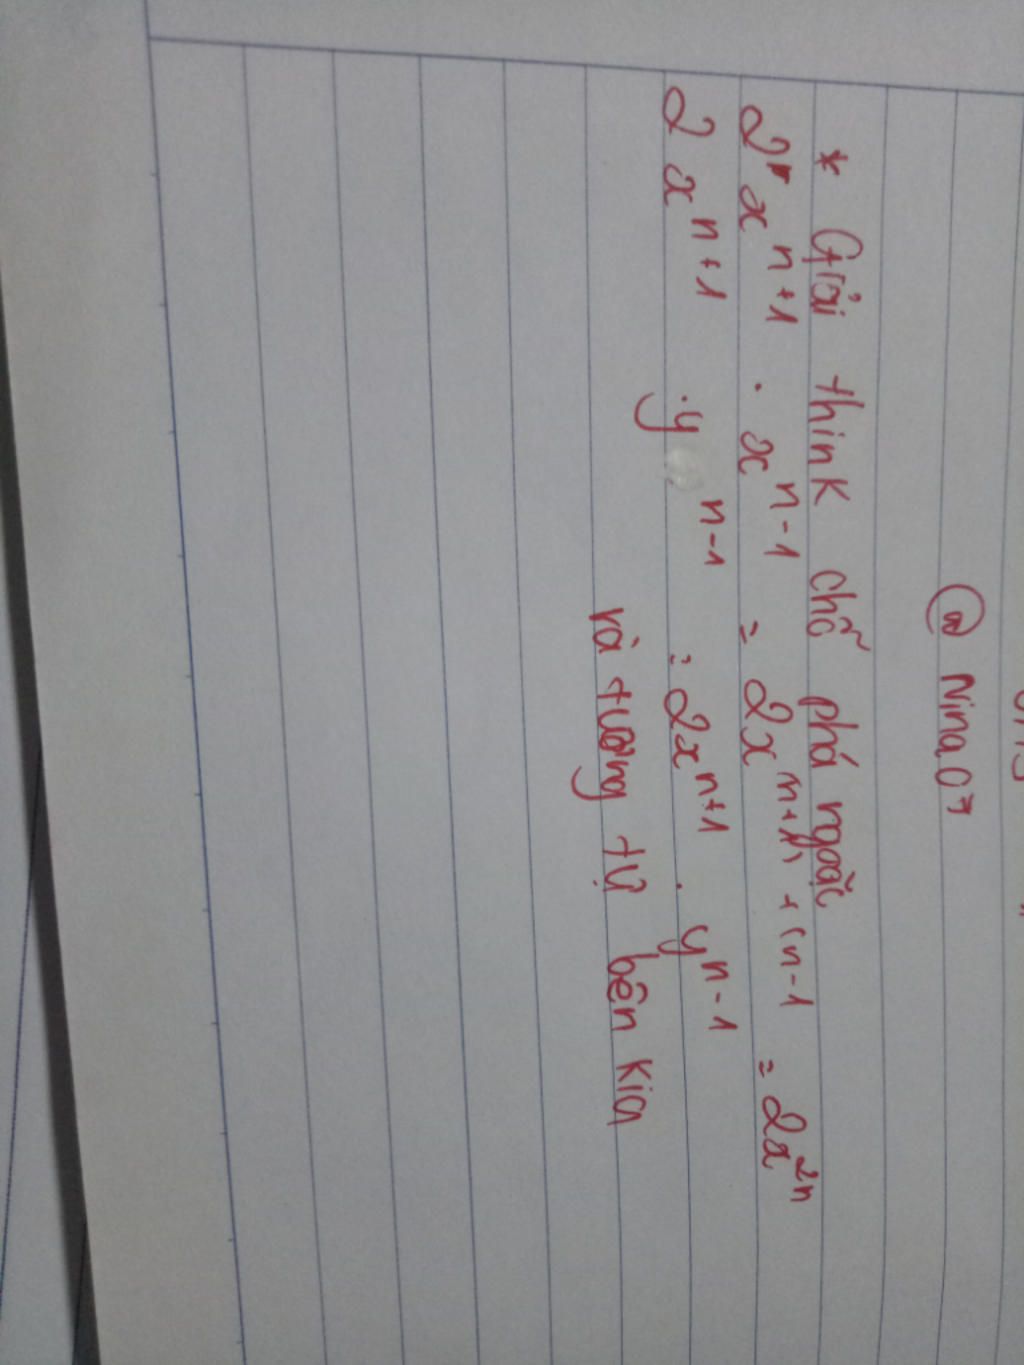 @ Nina07
* Giải think chỗ phá ngoặc
2 x^{n+1} . x^{n-1} = 2x^{n+1) + (n-1} = 2x^{2n}
2 x^{n+1} .y^{n-1} = 2x^{n+1} . y^{n-1}
và tương tự bên kia